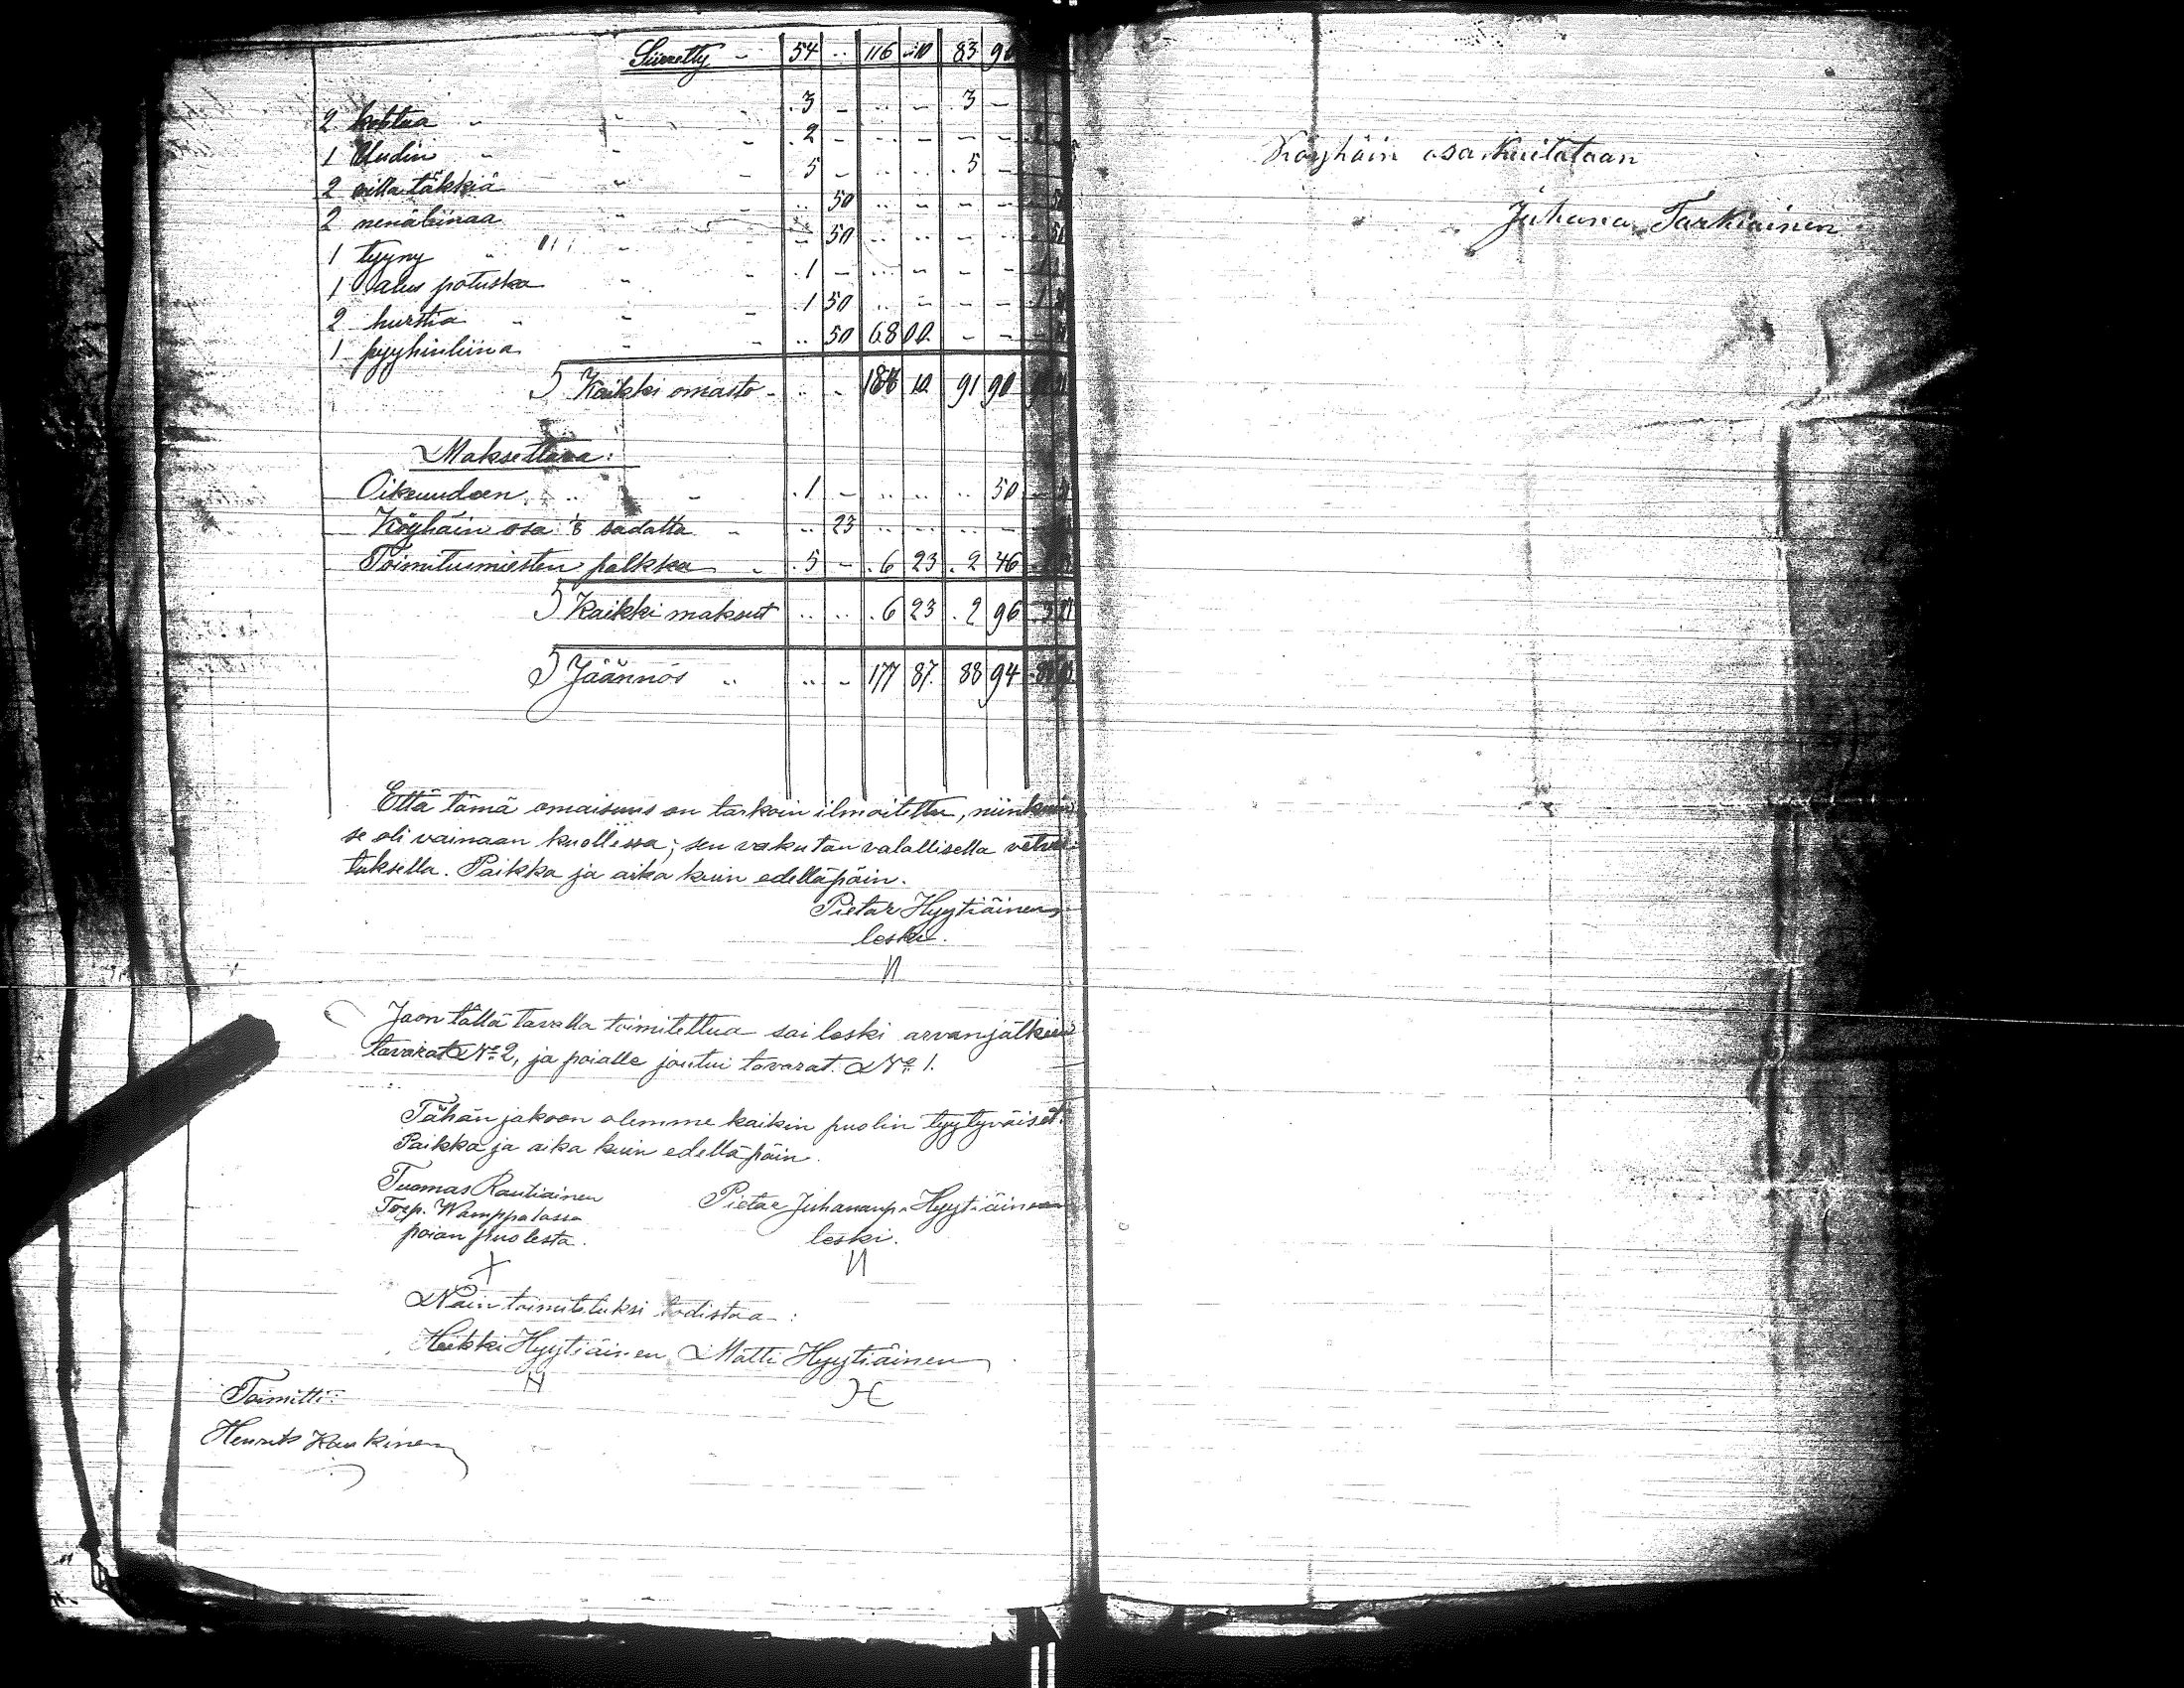 Siirretty - 54 .. 116 10 83 90
2 kohtaa - 3 - .. - 3 -
1 Uudin - 2 - .. - - -
2 villa täkkiä - 5 - .. .. 5 -
2 nenäliinaa - .. 50 .. - - - 50
1 tyyny - .. 50 .. .. - - 50
1 alus potuska - 1 - .. - - - 1
2 hurstia - 1 50 .. - - - 1 50
1 pyyhinliina - .. 50 68 00 - - 50
S Kaikki omaisto - .. - 184 10 91 90
Maksettava:
Oikeuden .. - 1 - .. .. .. 50
Köyhäin osa 1/8 sadatta - .. 23 .. .. .. -
Toimitusmiesten palkka - 5 - 6 23 2 46
S Kaikki maksut .. .. 6 23 2 96
S Jäännös .. .. - 177 87 88 94
Että tämä omaisuus on tarkoin ilmoitettu, niinkuin
se oli vainaan kuollessa; sen vakutan valallisella velvol-
tuksella. Paikka ja aika kuin edelläpäin.
Pietar Hyytiäinen
leski.
Jaon tällä tavalla toimitettua sai leski arvanjälkeen
tavarat No 2, ja poialle joutui tavarat No 1.
Tähän jakoon olemme kaikin puolin tyytyväiset.
Paikka ja aika kuin edelläpäin.
Tuomas Rautiainen Pietar Juhananp. Hyytiäinen
Torp. Wamppalassa leski.
poian puolesta.
Näin toimitetuksi todistaa:
Heikki Hyytiäinen Matti Hyytiäinen
Toimitti:
Henrik Kaukinen
Köyhäin osa kuitataan
Juhana Tarkiainen